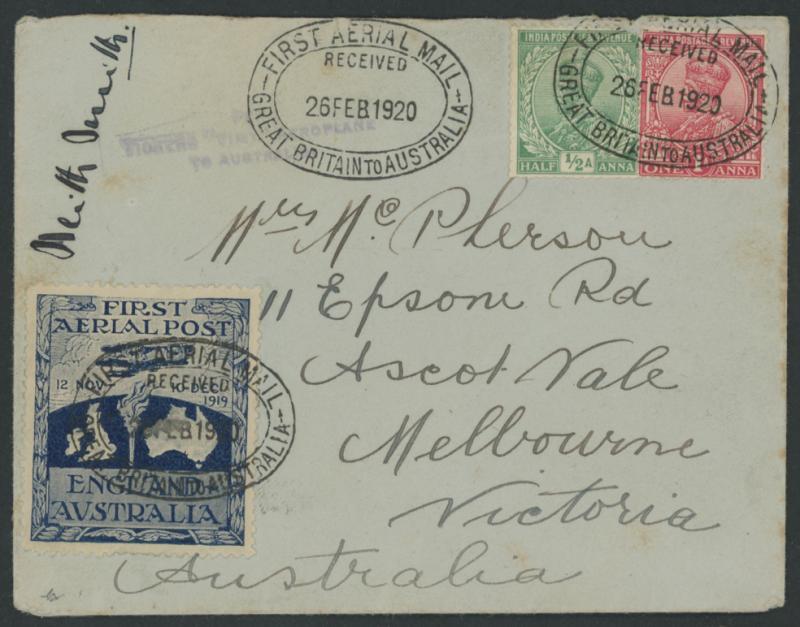 FIRST AERIAL MAIL
RECEIVED
26 FEB 1920
GREAT BRITAIN TO AUSTRALIA
TO AUSTRALIA
INDIA POSTAGE REVENUE
HALF ½A ANNA
FIRST AERIAL MAIL
RECEIVED
26 FEB 1920
GREAT BRITAIN TO AUSTRALIA
ONE 1 ANNA
Keith Smith.
Mrs Mc. Pherson
11 Epsom Rd
Ascot Vale
Melbourne
Victoria
Australia
FIRST
AERIAL POST
12 NOV
1919
ENGLAND
AUSTRALIA
FIRST AERIAL MAIL
RECEIVED
26 FEB 1920
GREAT BRITAIN TO AUSTRALIA